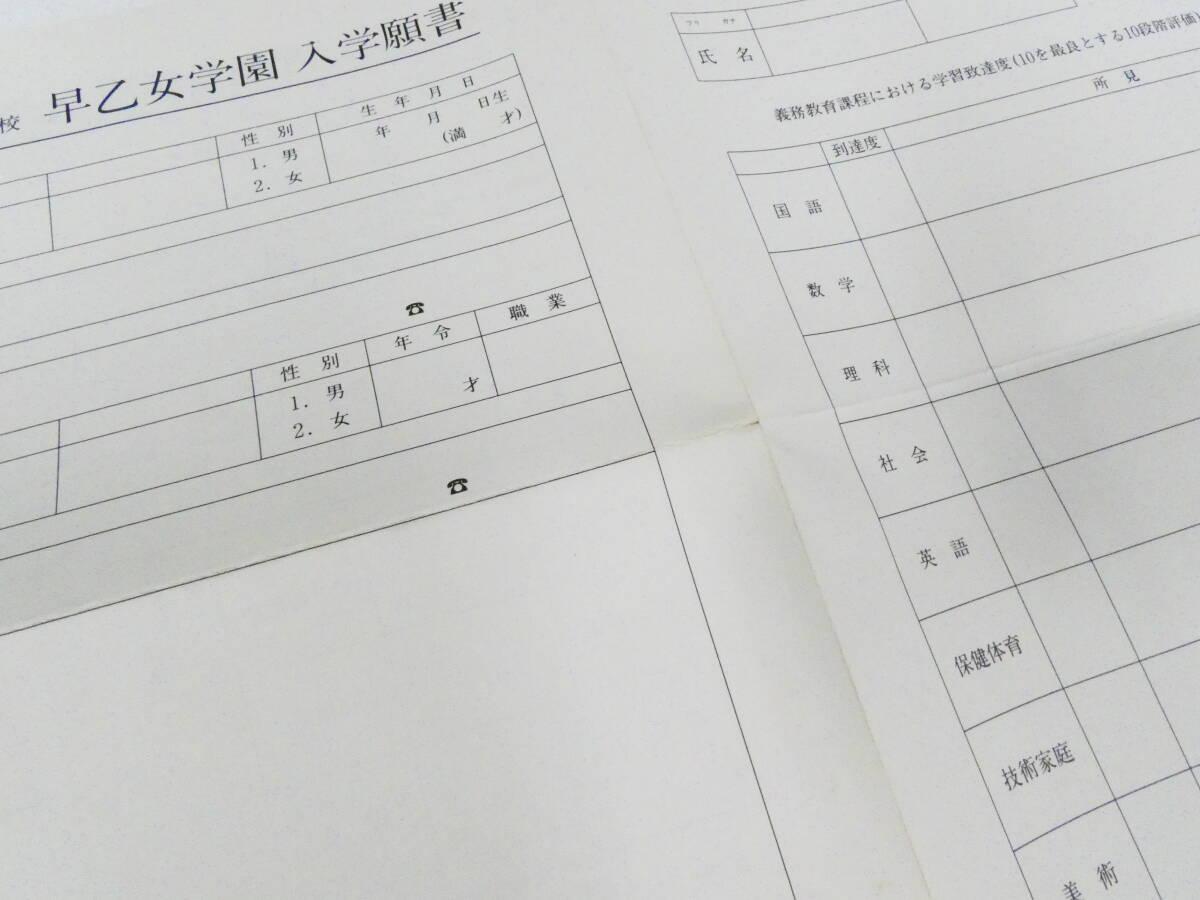 校 早乙女学園 入学願書
性別 生年月日
1. 男 年 月 日生
2. 女 (満 才)
☎
性別 年令 職業
1. 男
2. 女 才
☎
フリ ガナ
氏名
義務教育課程における学習致達度(10を最良とする10段階評価)
到達度 所見
国語
数学
理科
社会
英語
保健体育
技術家庭
美術